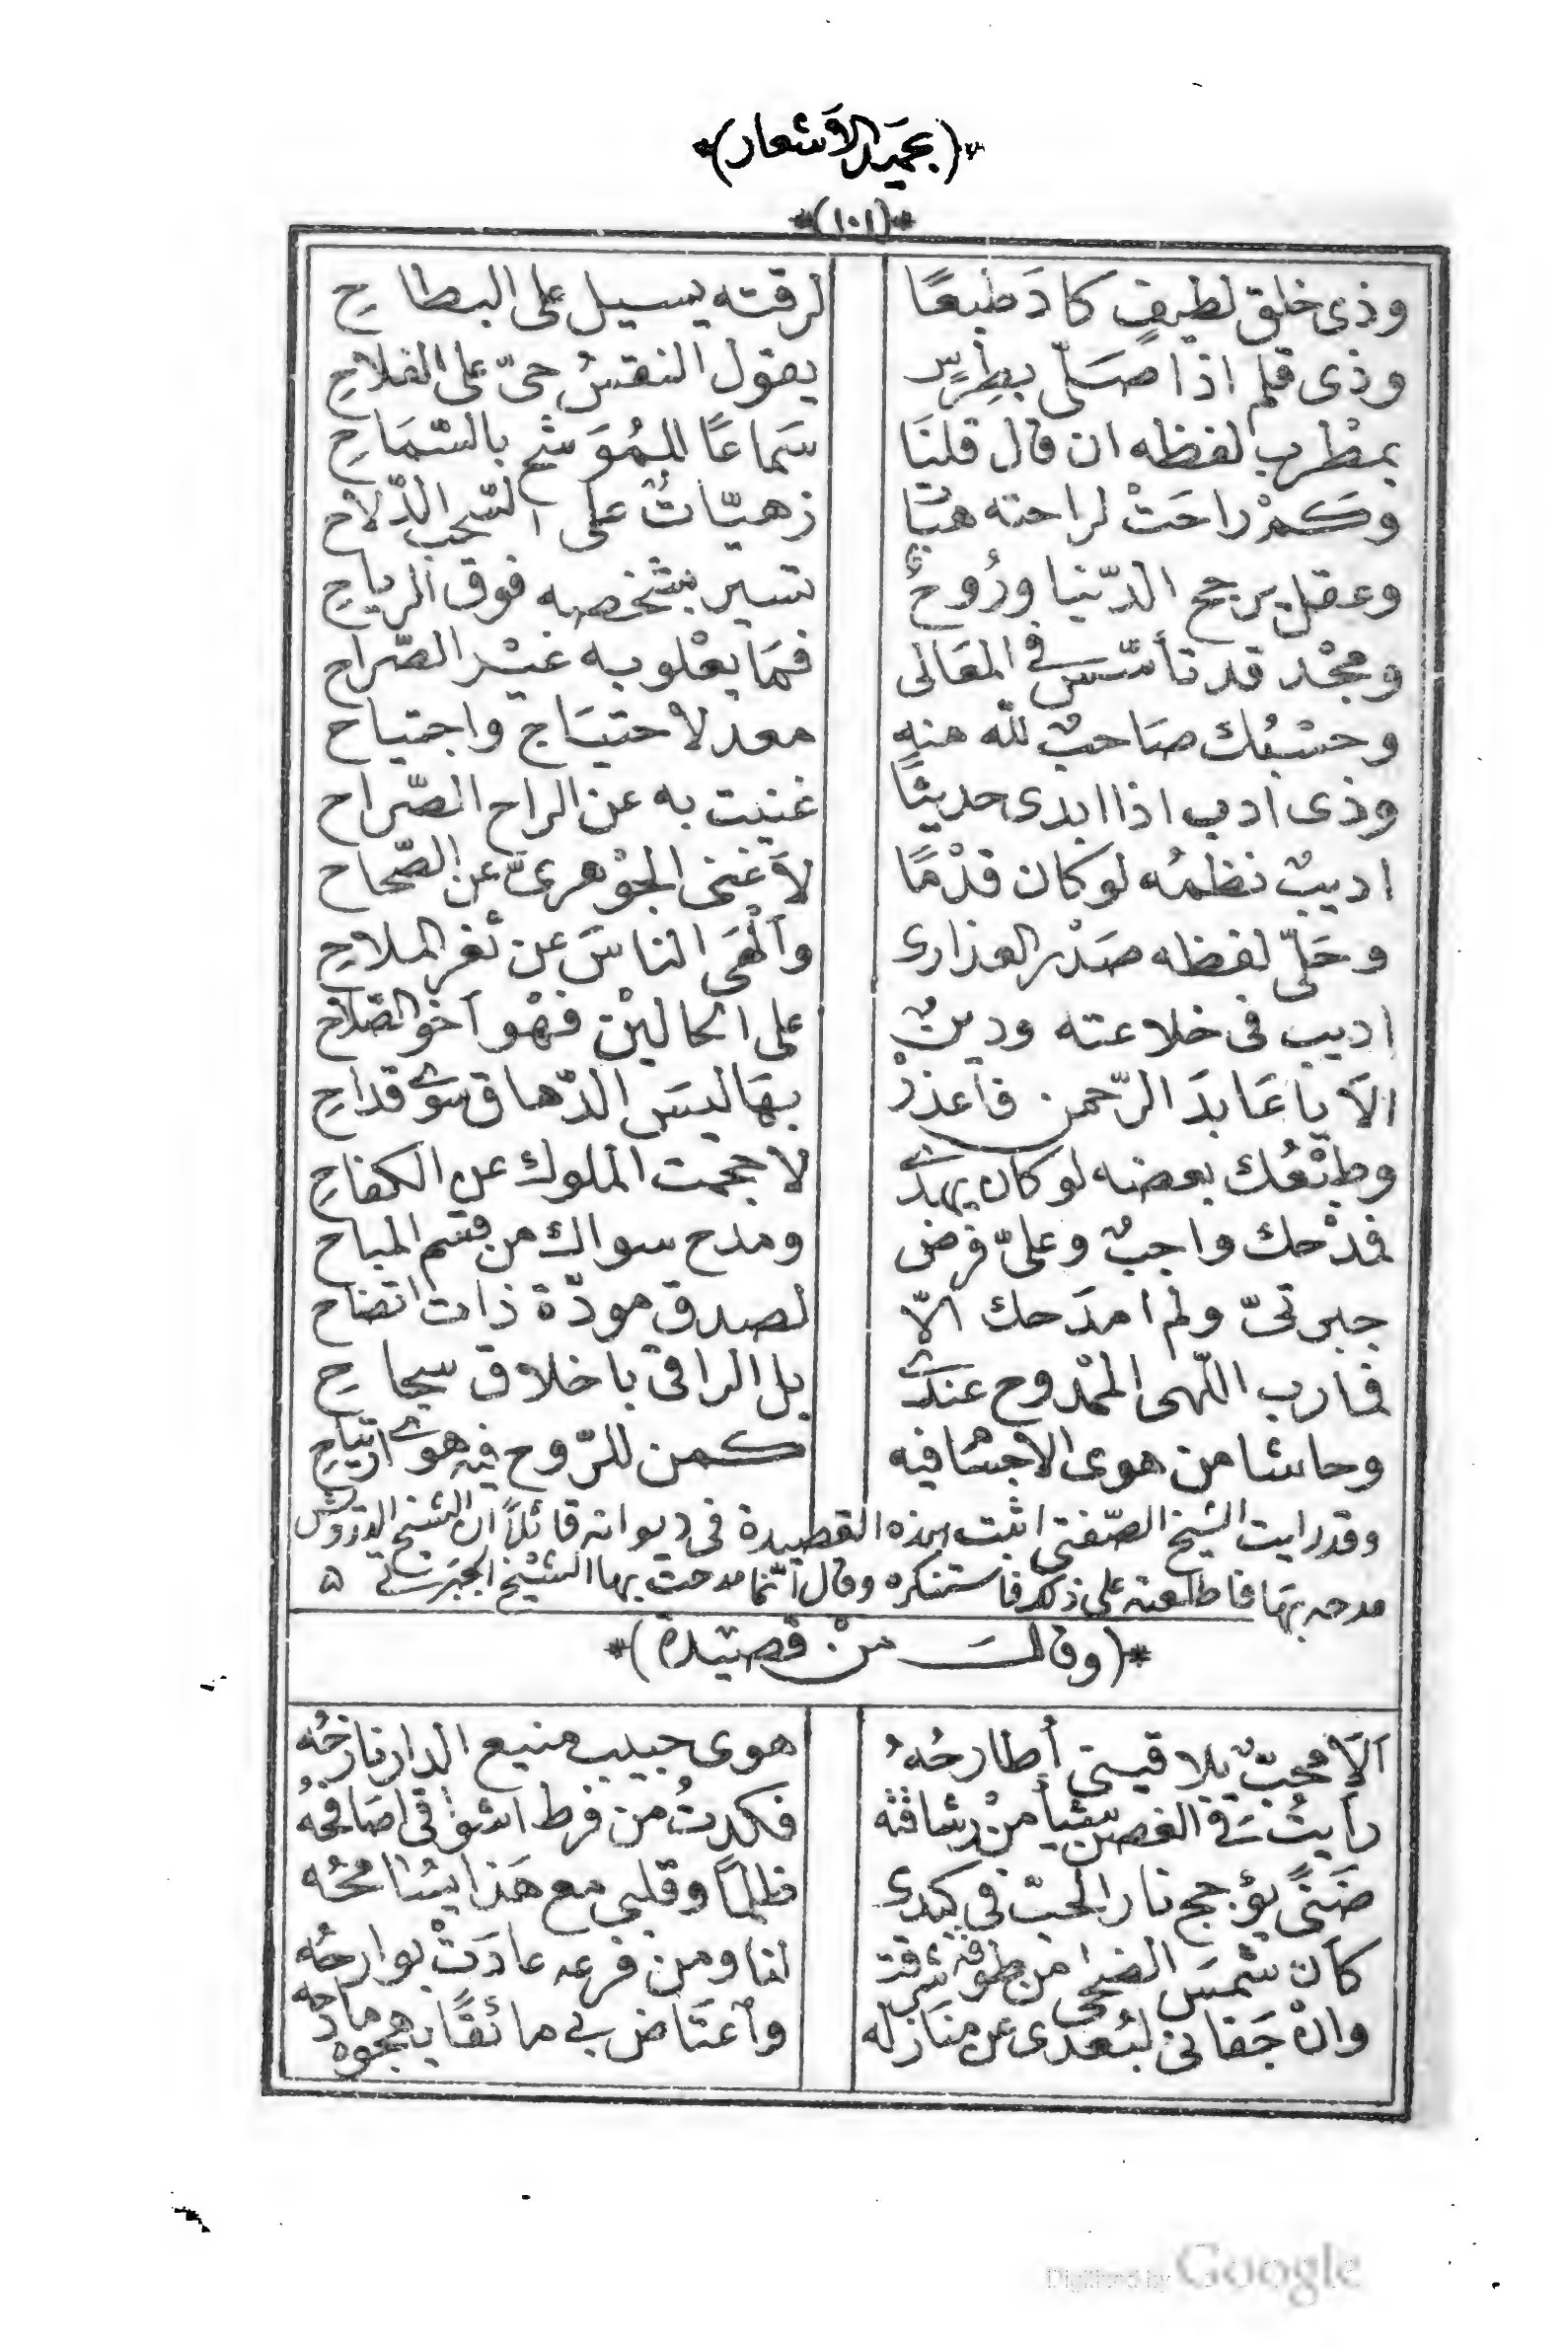 *(بحميد الاَشعار)*
*(١٠١)*
وذى خلق لطيفٍ كادَ طبعًا لرقته يسيل على البطاحِ
وذى قلم اذا صَلّى بطِرسٍ يقول النقسُ حىّ على الفلاحِ
بمطْرب لفظه ان قال قلنَا سَماعًا للمُوَشح بالسّمَاحِ
وكمْ راحَتْ لراحته هبَا زهيّاتٌ على السّحب الدّلاح
وعقل يرجح الدّنيا ورُوحٌ تسير بشخصه فوق الرياحِ
ومجْد قد تأسّسَ فى المعَالى فمَا يعْلو به غيْر الصّراح
وحسْبُك صَاحبٌ للّه منه معد لاحتيَاج واجتياح
وذى ادب اذا ابدى حديثًا غنيت به عن الراح الصّراح
اديبٌ نظمُه لو كان قدْمًا لاَغنى الجوْهرىَّ عن الصّحاح
وحَلّى لفظه صَدْر العذارى وآلْهَى الناسَ عن ثغر الملاحِ
اديب فى خلاعته ودينٌ على الحالينْ فهْو اخو الصّلاح
الاَ يا عَابدَ الرّحمن فاعذرْ بهَا ليسَ الدّهاق سوَى قداحِ
وطبْعُك بعضه لو كان يهدَى لاحجمت الملوك عن الكفاحِ
فمدْحك واجبٌ وعلىّ فرض ومدح سواك من قسم المباح
جبرتىّ ولم امدَحك الاّ لصدق مودّة ذات اتضاح
فارب اللّهى الممْدوح عندَى بل الراقى باخلاق سجاحِ
وحاشا من هوى الاجسْام فيه كمن للرّوح فيه هوَى ارتياحِ
وقد رايت الشيخ الصّفتى اثبت هذه القصيدة فى ديوانه قائلاً ان الشيخ الدرويش
مدحه بهَا فاطلعته على ذلك فاستنكره وقال انّما مدحت بها الشيْخ الجبَرتى ه
*(وقالَ منْ قصيْدة)*
اَلاَ محبّ يلاقينى أطارحُهُ هوى حبيب منيع الدار نازحُه
رأيتُ فى الغصن شيأ منْ رشاقته فكدتُ من فرط اشواقى اصَافحُهُ
ضَنًى يؤجج نار الحبّ فى كبدى ظلمًا وقلبى مع هَذا يسُامحُه
كأن شمسَ الضحى من طوقه شرقت لنا ومن فرعه عادَتْ بوارحُه
وانْ جَفانى لبُعدى عن منَازله وآعتَاض بى مائقًا يهجوه مادحه
Digitized by Google